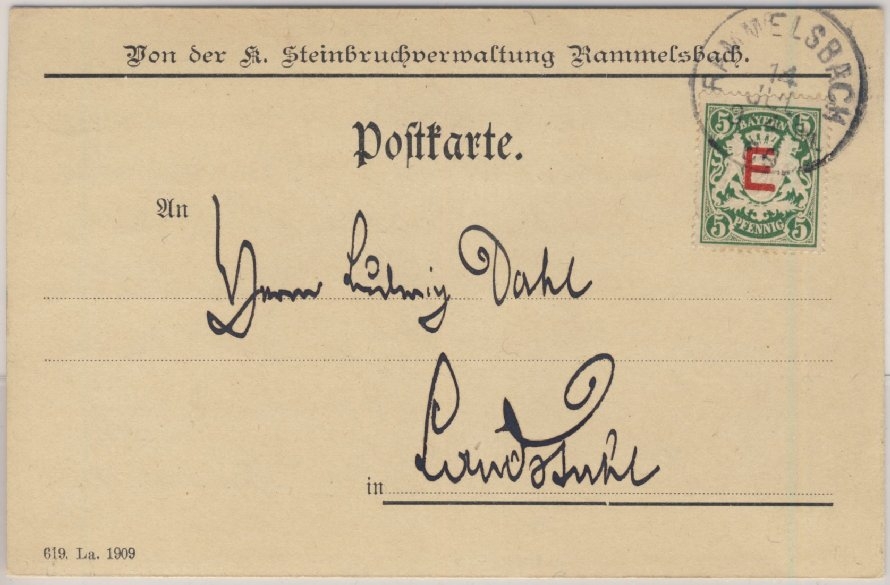 Von der K. Steinbruchverwaltung Rammelsbach.
RAMMELSBACH
14
JUL
5 BAYERN 5
E
5 PFENNIG 5
Postkarte.
An
Herrn Ludwig Dahl
Landstuhl
in
619. La. 1909